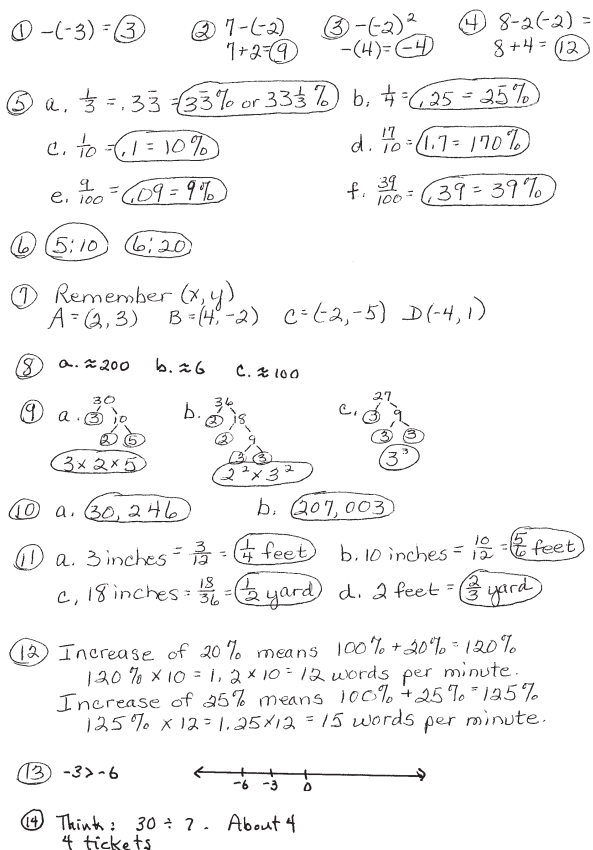 ① -(-3) = 3 ② 7-(-2) ③ -(-2)² ④ 8-2(-2) =
7+2=9 -(4)=-4 8+4=12
⑤ a. 1/3 = .33̄ = 33̄% or 33 1/3% b. 1/4 = .25 = 25%
c. 1/10 = .1 = 10% d. 17/10 = 1.7 = 170%
e. 9/100 = .09 = 9% f. 39/100 = .39 = 39%
⑥ 5:10 6:20
⑦ Remember (x,y)
A=(2,3) B=(4,-2) C=(-2,-5) D(-4,1)
⑧ a. ≈200 b. ≈6 c. ≈100
⑨ a. 30 b. 36 c. 27
3 10 2 18 3 9
2 5 2 9 3 3
3 3
3×2×5 2²×3² 3³
⑩ a. 30,246 b. 207,003
⑪ a. 3 inches = 3/12 = 1/4 feet b. 10 inches = 10/12 = 5/6 feet
c, 18 inches = 18/36 = 1/2 yard d. 2 feet = 2/3 yard
⑫ Increase of 20% means 100%+20%=120%
120% × 10 = 1.2×10=12 words per minute.
Increase of 25% means 100%+25%=125%
125% × 12=1.25×12 = 15 words per minute.
⑬ -3>-6 -6 -3 0
⑭ Think: 30 ÷ 7. About 4
4 tickets